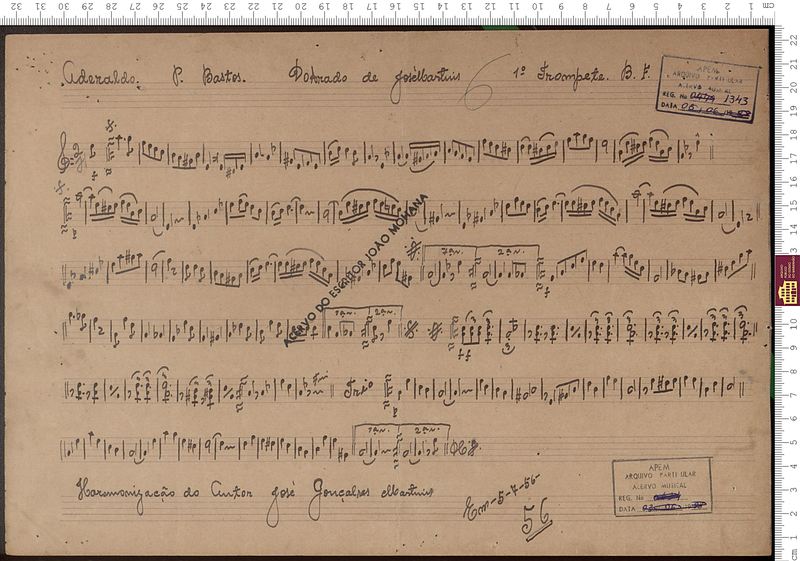 Aderaldo. P. Bastos. Dobrado de José Martins 1º Trompete. B. F.
APEM
ARQUIVO PARTICULAR
ACERVO MUSICAL
REG. No 1343
DATA
ACERVO DO ESCRITOR JOÃO MOHANA
1ª v. 2ª v.
1ª v. 2ª v.
Trio
1ª v. 2ª v.
Harmonização do Autor José Gonçalves Martins
Em-5-7-56-
56
APEM
ARQUIVO PARTICULAR
ACERVO MUSICAL
REG. No
DATA